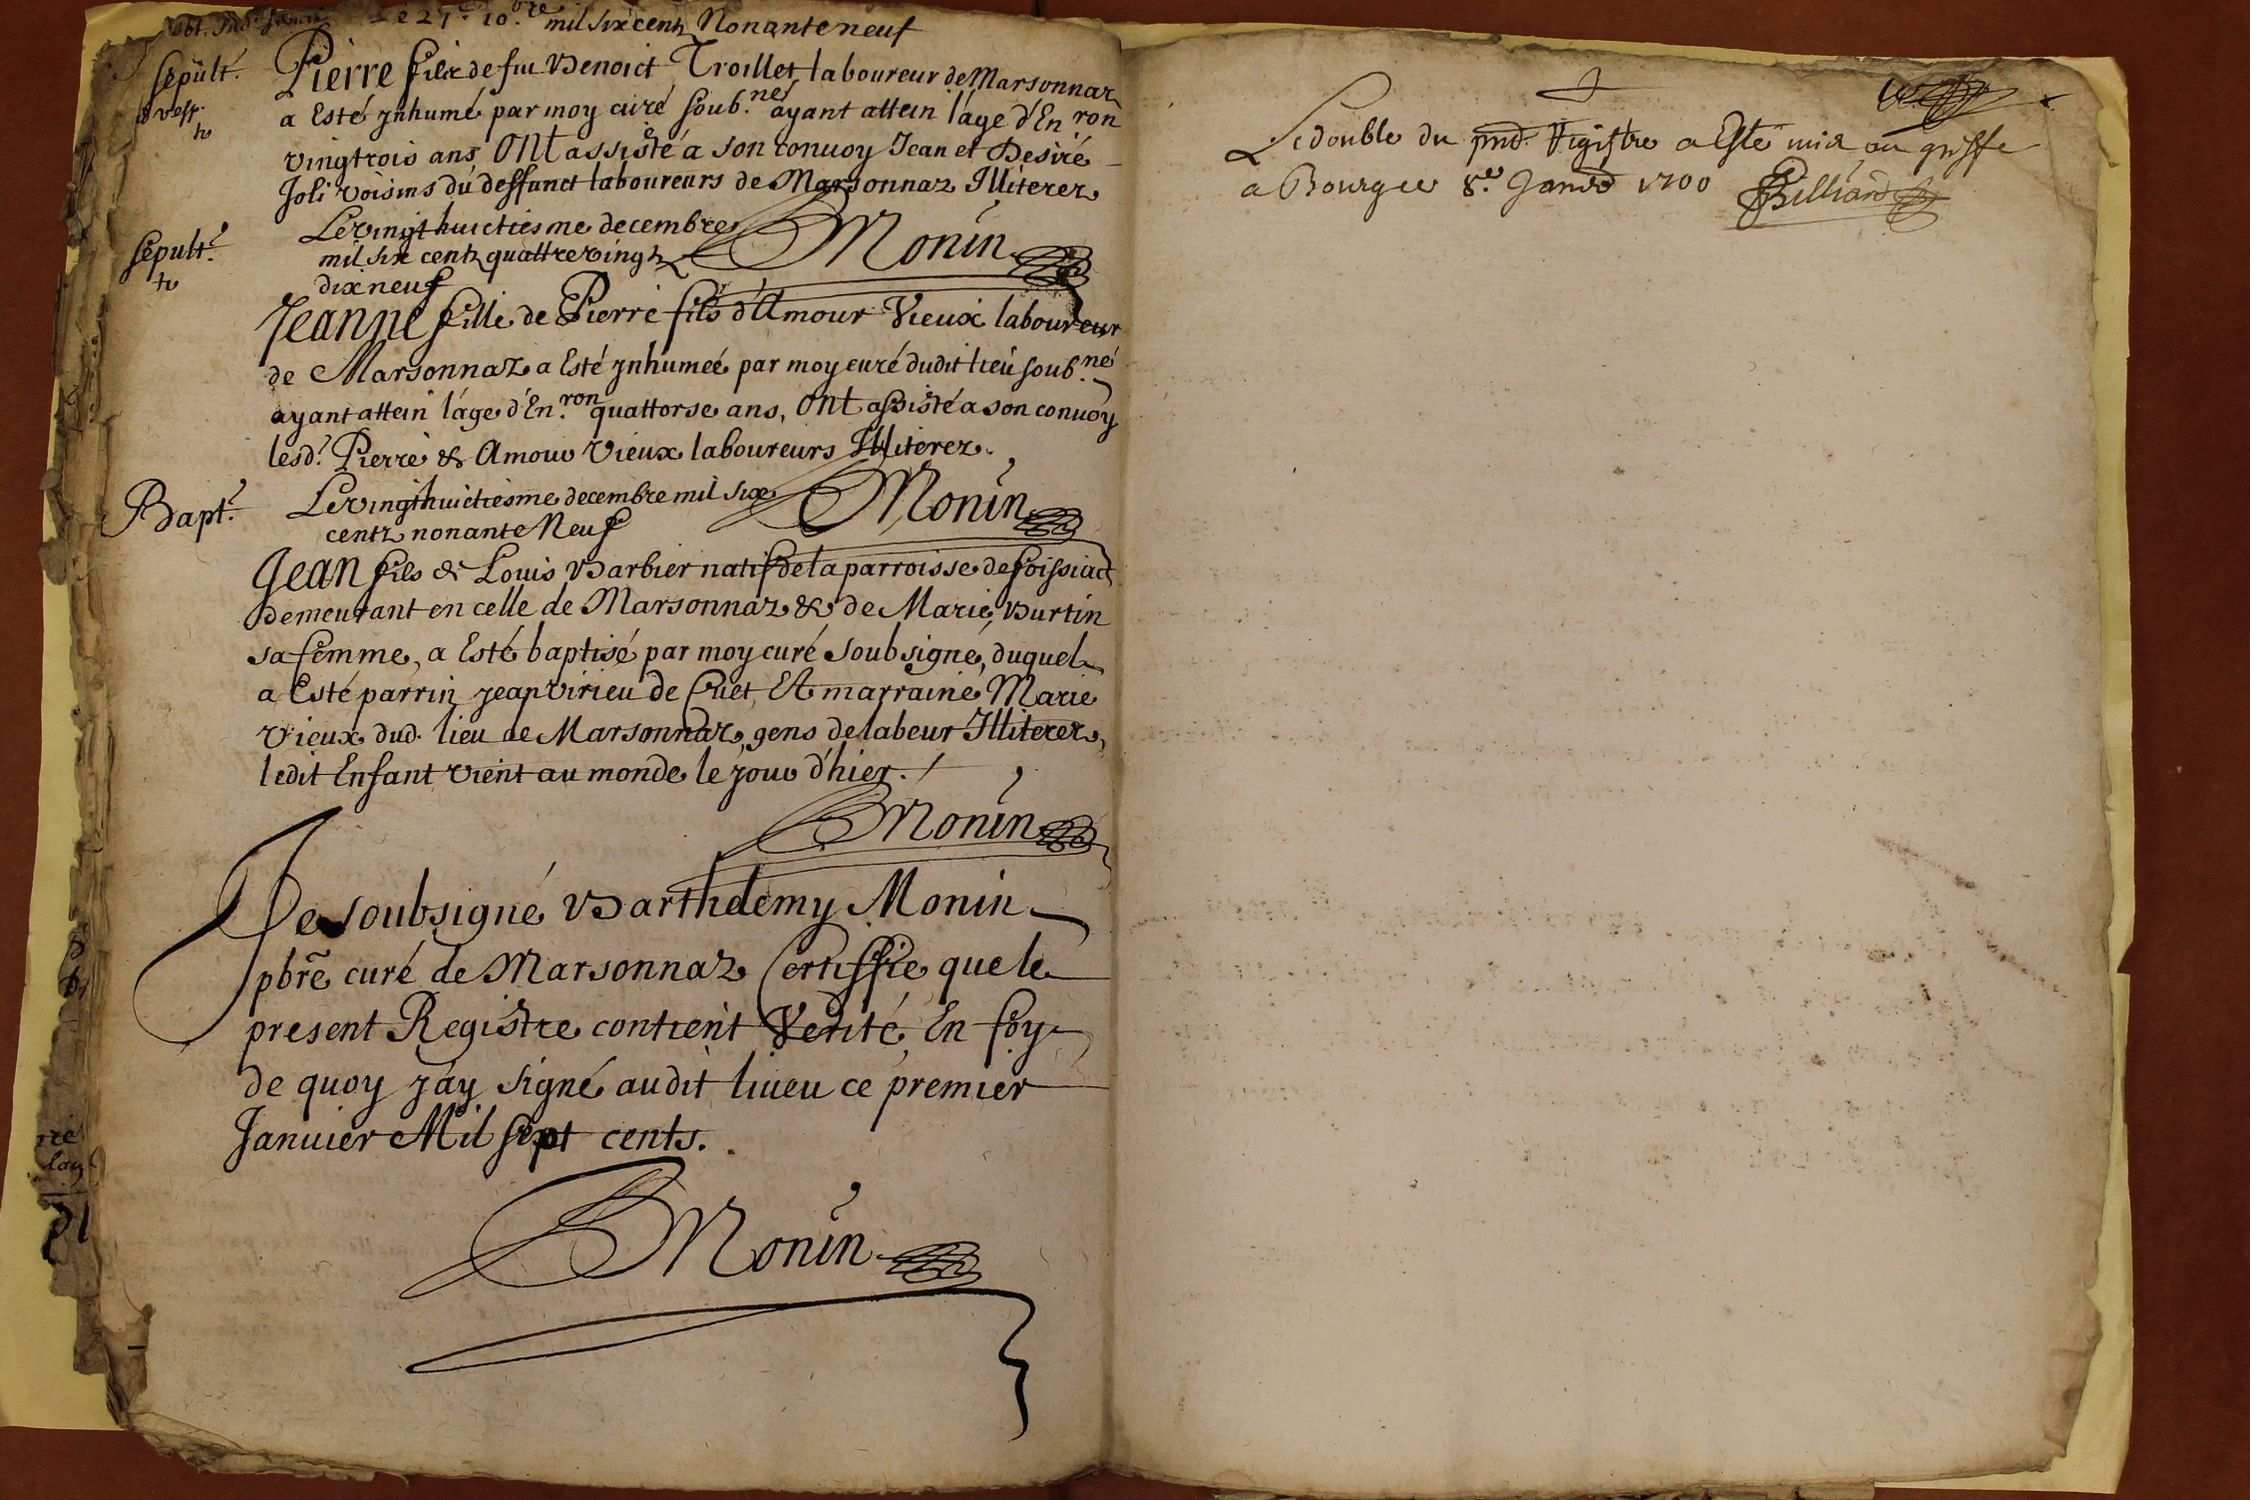 Le 27e 10bre mil six centz Nonante neuf
sepult.
Pierre filz de feu Benoict Troillet laboureur de Marsonnaz
a Esté ynhumé par moy curé soub.nes ayant attein l'áge d'En.ron
vingtrois ans, ONt assisté á son convoy Jean et Desiré
Joli voisins du deffunct laboureurs de Marsonnaz Illiterez
sepult.e
Le vingt huictiesme decembre
mil six centz quattrevingtz
dix neuf
Monin
Jeanne fille de Pierre fils d'Amour Vieux laboureur
de Marsonnaz a Esté ynhumeé par moy curé dudit lieu soub.né
ayant attein l'áge d'En.ron quattorse ans, ONt assisté a son convoy
lesd.t Pierre & Amour Vieux laboureurs Illiterez.
Bapt.e
Le vingthuictiesme decembre mil six
centz nonante Neuf
Monin
Jean fils de Louis Barbier natif de la parroisse de foissiact
Demeurant en celle de Marsonnaz & de Marie Burtin
sa femme, a Esté baptisé par moy curé soubsigné, duquel
a Esté parrin jean virieu de Cuet, Et marraine Marie
Vieux dud. lieu de Marsonnaz, gens de labeur Illiterez,
ledit Enfant vient au monde le jour d'hier. /
Monin
Je soubsigné Barthelemy Monin
pbrẽ curé de Marsonnaz Certiffie que le
present Registre contient Verité, En foy
de quoy j'ay signé audit liueu ce premier
Januier Mil sept cents.
Monin
Le double du pnd. Registre a Esté mis au griffe
a Bourg ce 8.e Janvr 1700 Billiard